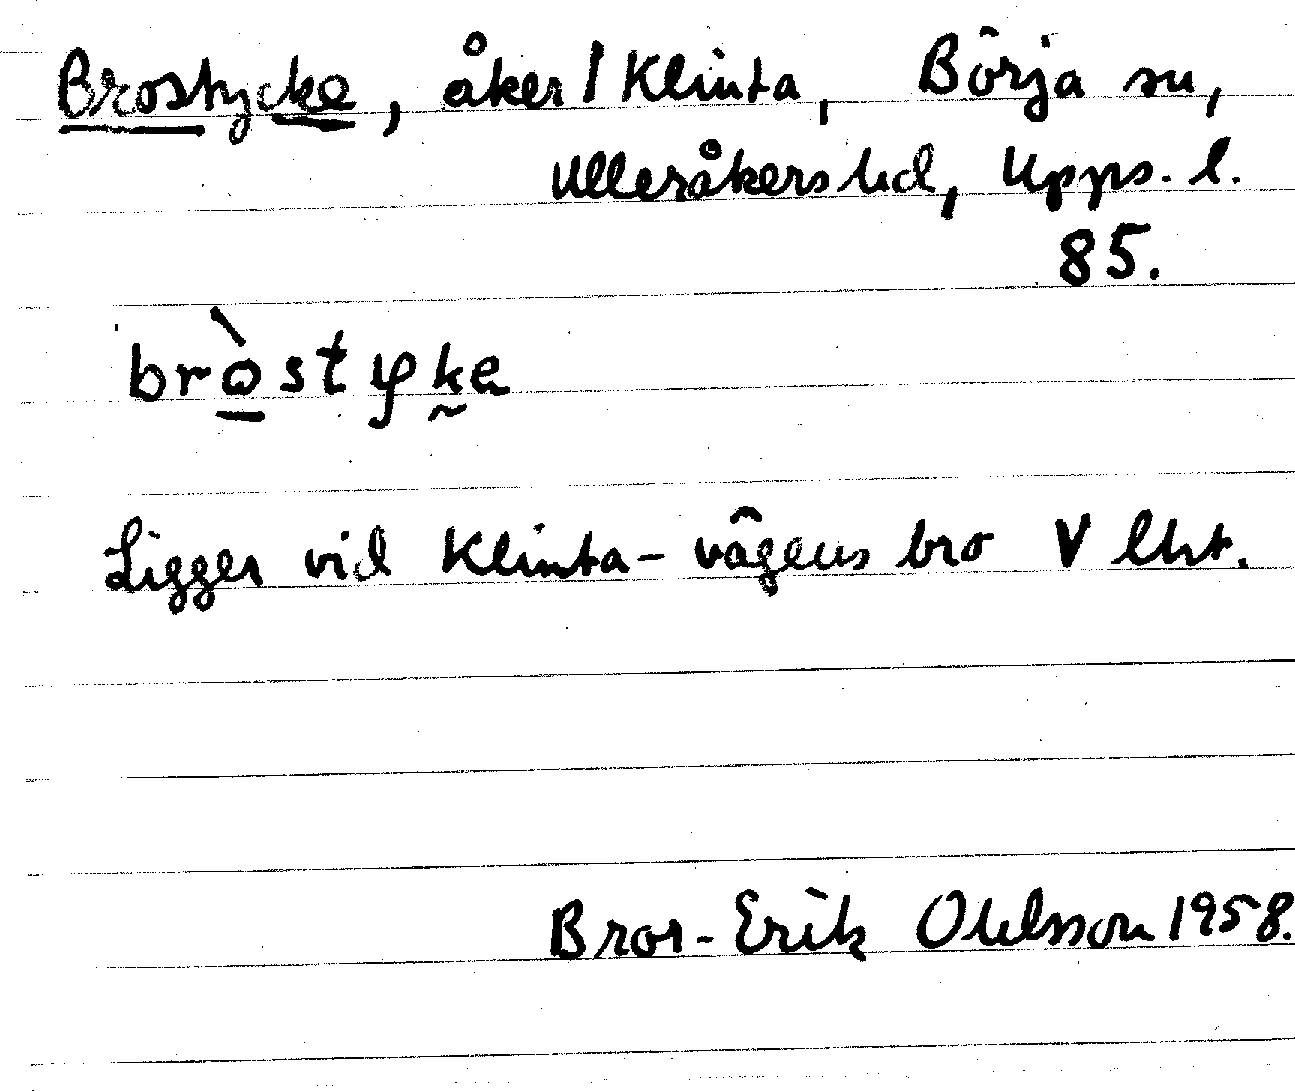 Brostycke, åker / Klinta, Börja sn,
Ulleråkers hd, Upps. l.
85.
bròstyke
Ligger vid Klinta-vägens bro V lht.
Bror-Erik Ohlsson 1958.